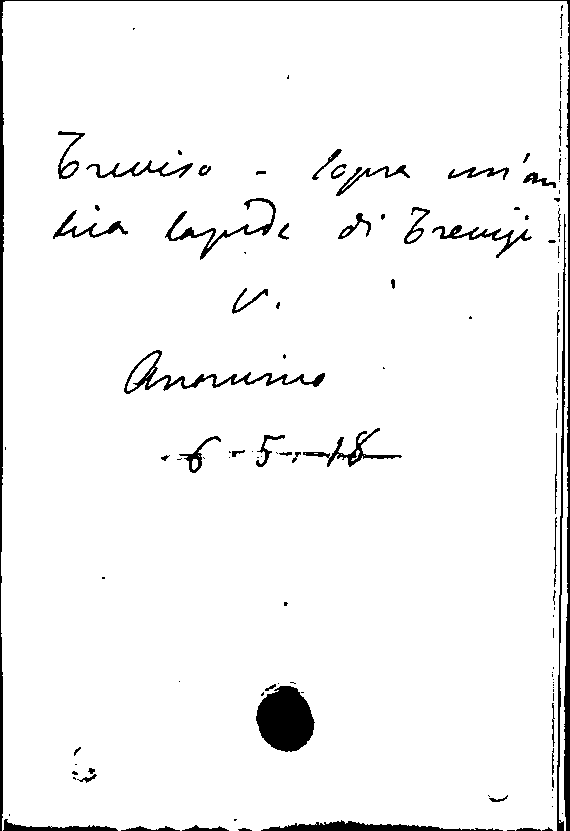 Treviso - Sopra un'an
tica lapide di Trevigi -
V.
Anonimo
6-5-18